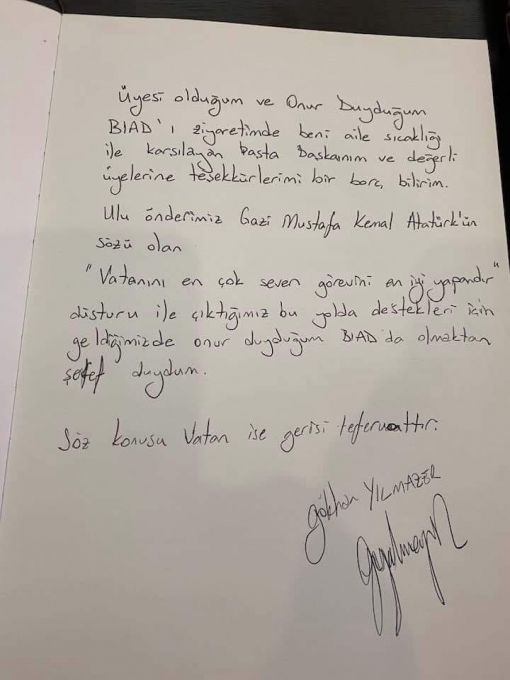 Üyesi olduğum ve Onur Duyduğum
BIAD'ı ziyaretimde beni aile sıcaklığı
ile karşılayan Başta Başkanım ve değerli
üyelerine teşekkürlerimi bir borç bilirim.
Ulu önderimiz Gazi Mustafa Kemal Atatürk'ün
sözü olan
"Vatanını en çok seven görevini en iyi yapandır"
düsturu ile çıktığımız bu yolda destekleri için
geldiğimizde onur duyduğum BIAD'da olmaktan
şeref duydum.
Söz konusu Vatan ise gerisi teferuattır.
Gökhan YILMAZER